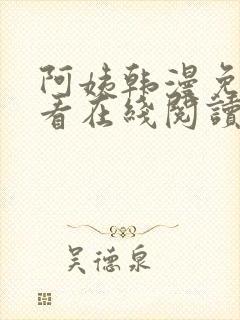 阿姨韩漫免
看在线阅读
吴德泉